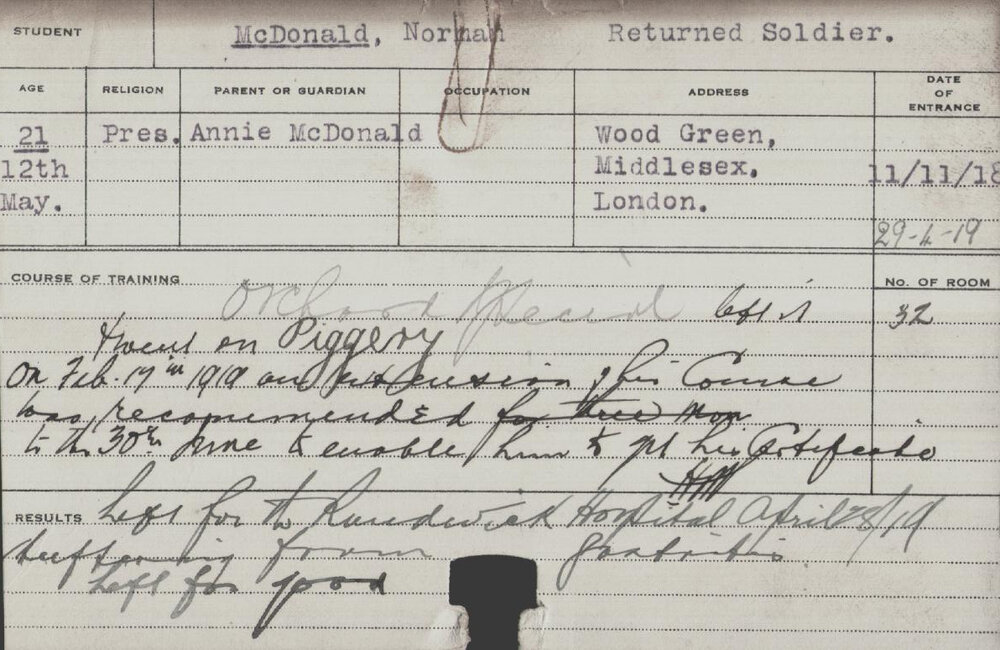 STUDENT McDonald, Norman Returned Soldier.
AGE RELIGION PARENT OR GUARDIAN OCCUPATION ADDRESS DATE OF ENTRANCE
21 Pres. Annie McDonald Wood Green,
12th Middlesex, 11/11/18
May. London.
29-4-19
COURSE OF TRAINING No. OF ROOM
Orchard Special left it 32
& went on Piggery
On Feb. 17th 1919 an extension of his Course
was recommended for three mon
to the 30th June to enable him to get his Certificate
RESULTS Left for the Randwick Hospital April 28/19
suffering from gastritis
Left for good